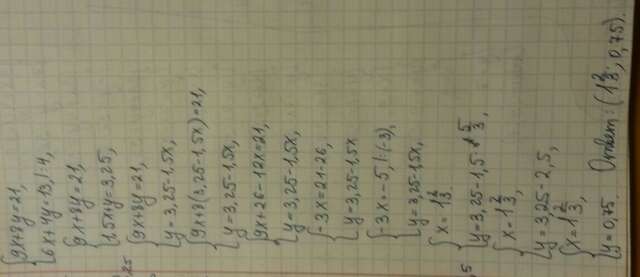 {9x+8y=21,
{6x+4y=13, |:4,
{9x+8y=21,
{1,5x+y=3,25,
{9x+8y=21,
{y=3,25-1,5x,
{9x+8(3,25-1,5x)=21,
{y=3,25-1,5x,
{9x+26-12x=21,
{y=3,25-1,5x,
{-3x=21-26,
{y=3,25-1,5x
{-3x=-5, |:(-3),
{y=3,25-1,5x,
{x=1 2/3
{y=3,25-1,5·5/3,
{x=1 2/3,
{y=3,25-2,5,
{x=1 2/3,
{y=0,75.
Ответ: (1 2/3; 0,75).